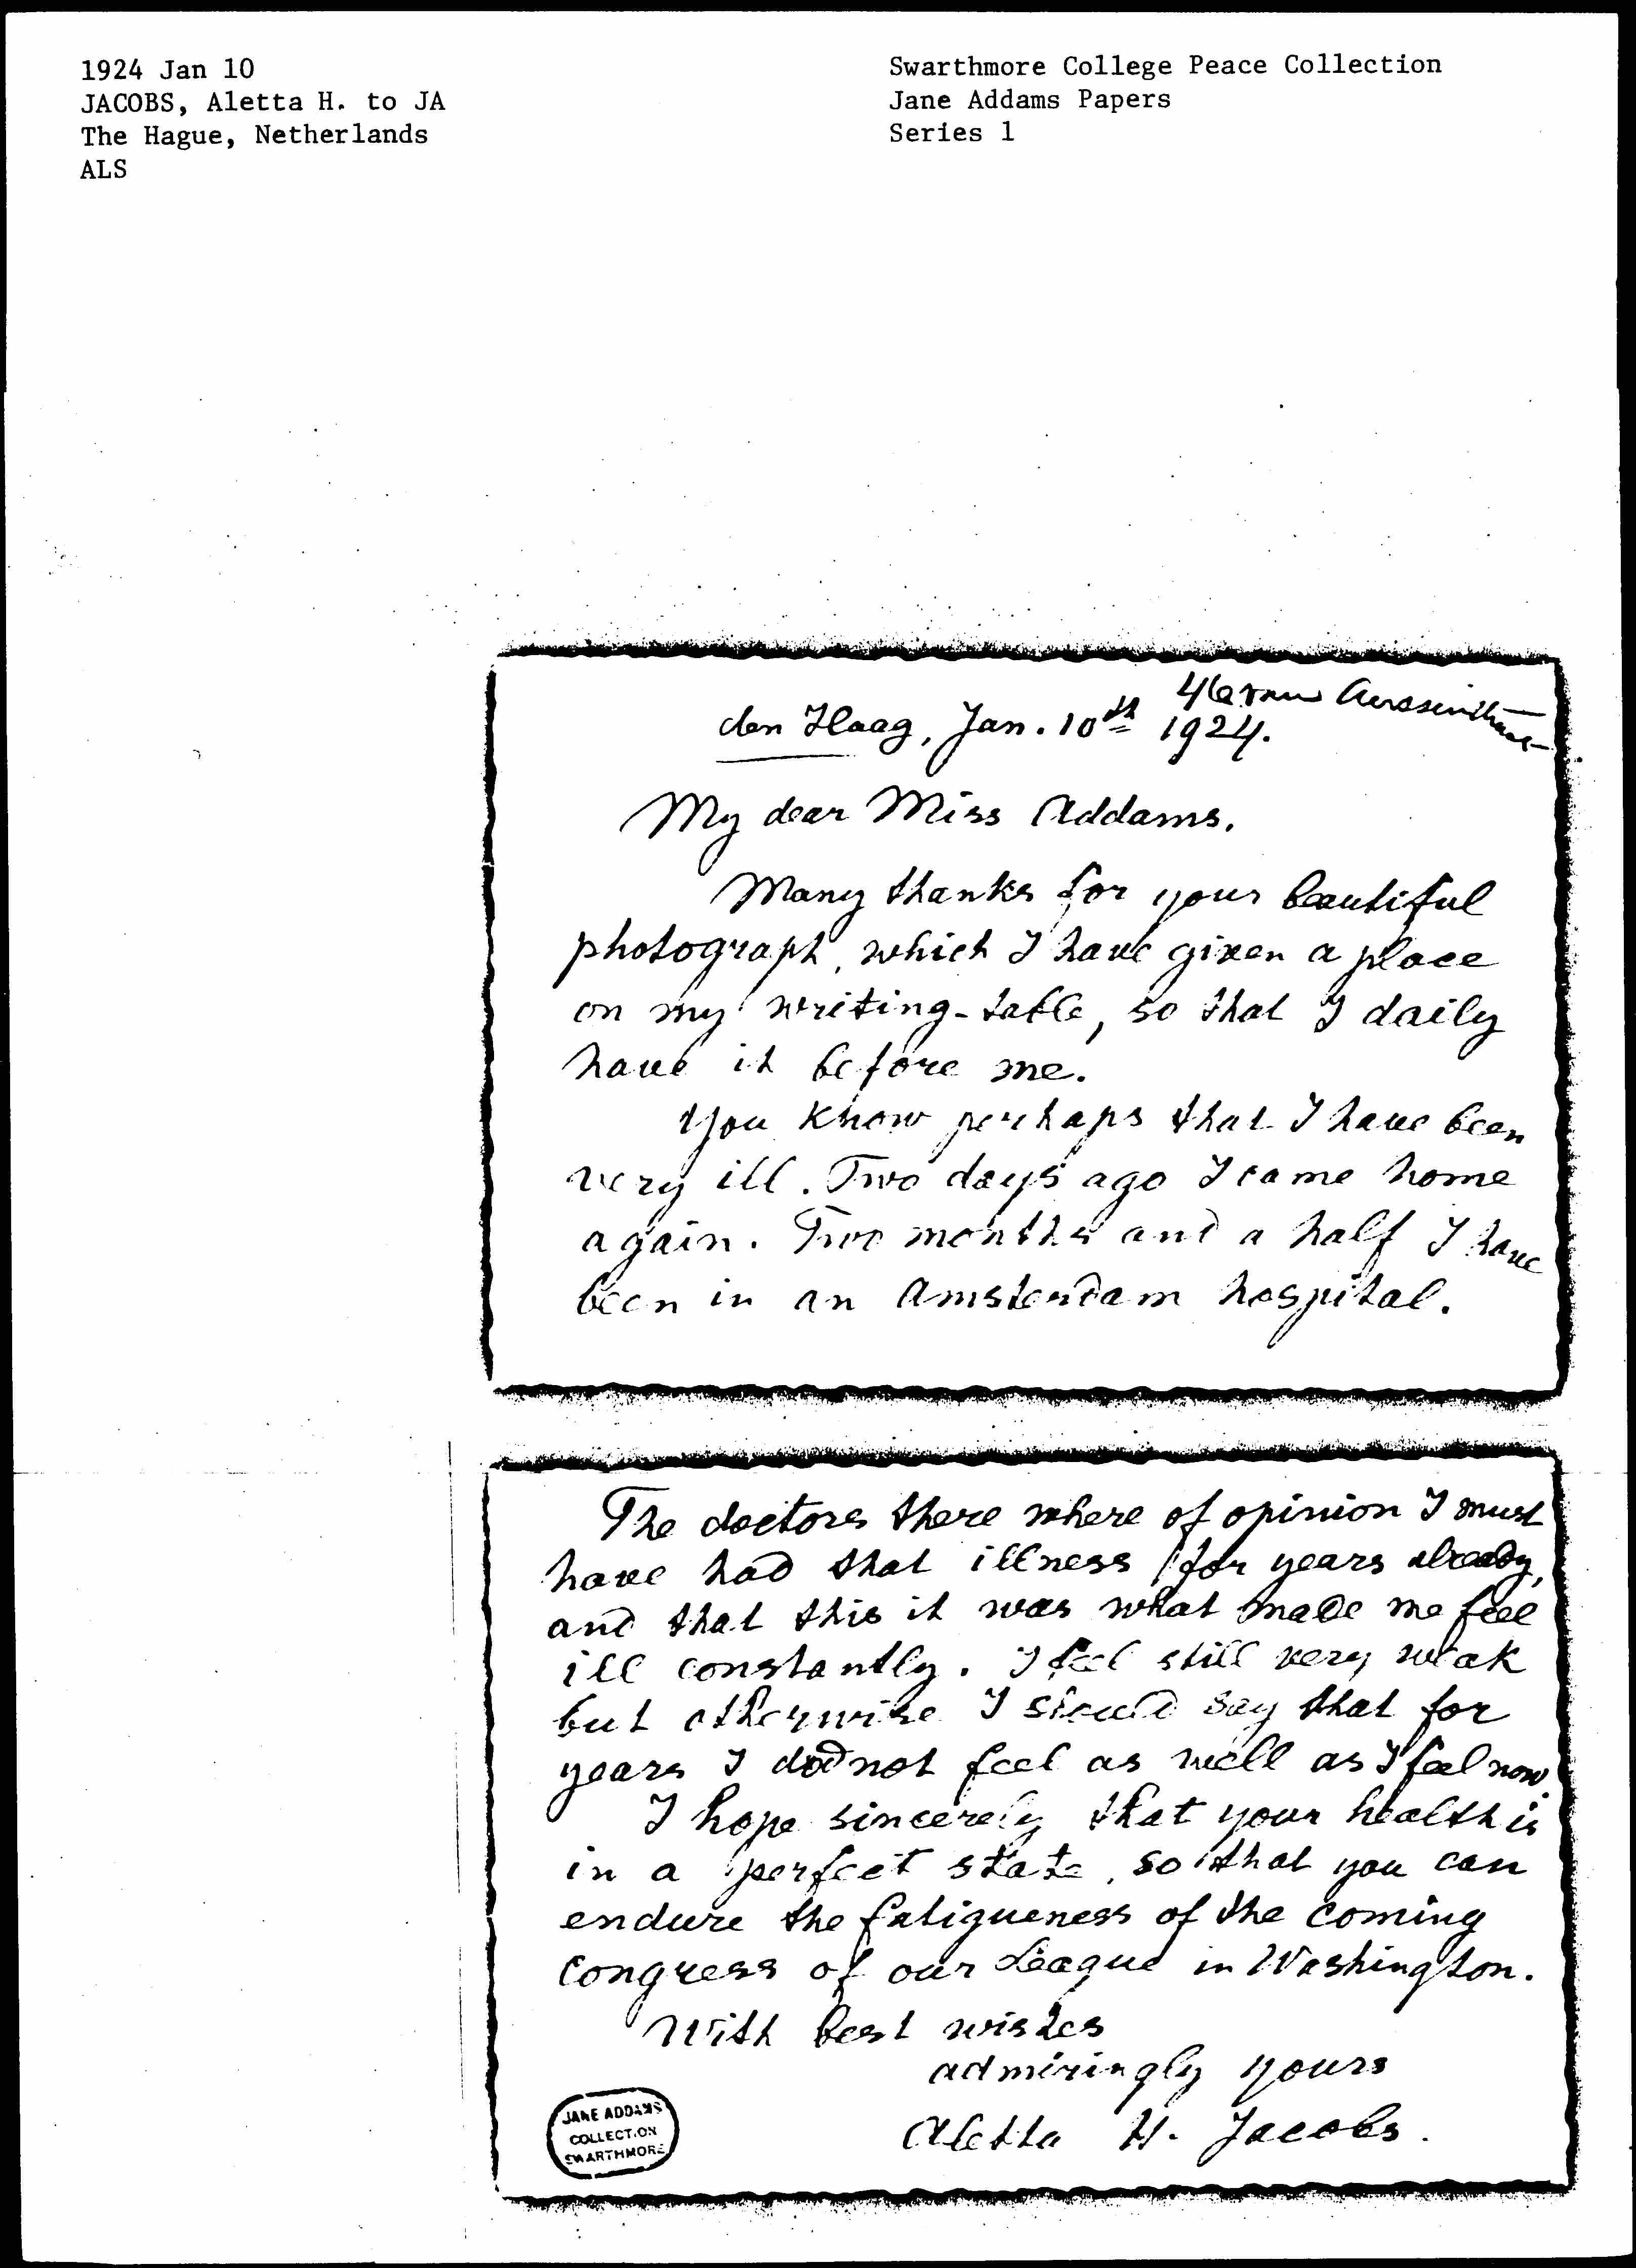 1924 Jan 10
JACOBS, Aletta H. to JA
The Hague, Netherlands
ALS
Swarthmore College Peace Collection
Jane Addams Papers
Series 1
den Haag, Jan. 10th 1924.
My dear Miss Addams.
Many thanks for your beautiful
photograph, which I have given a place
on my writing-table, so that I daily
have it before me.
You know perhaps that I have been
very ill. Two days ago I came home
again. Two months and a half I have
been in an Amsterdam hospital.
The doctors there where of opinion I must
have had that illness for years already,
and that this it was what made me feel
ill constantly. I feel still very weak
but otherwise I should say that for
years I did not feel as well as I feel now
I hope sincerely that your health is
in a perfect state, so that you can
endure the fatigueness of the coming
Congress of our League in Washington.
With best wishes
admiringly yours
Aletta H. Jacobs.
JANE ADDAMS
COLLECTION
SWARTHMORE